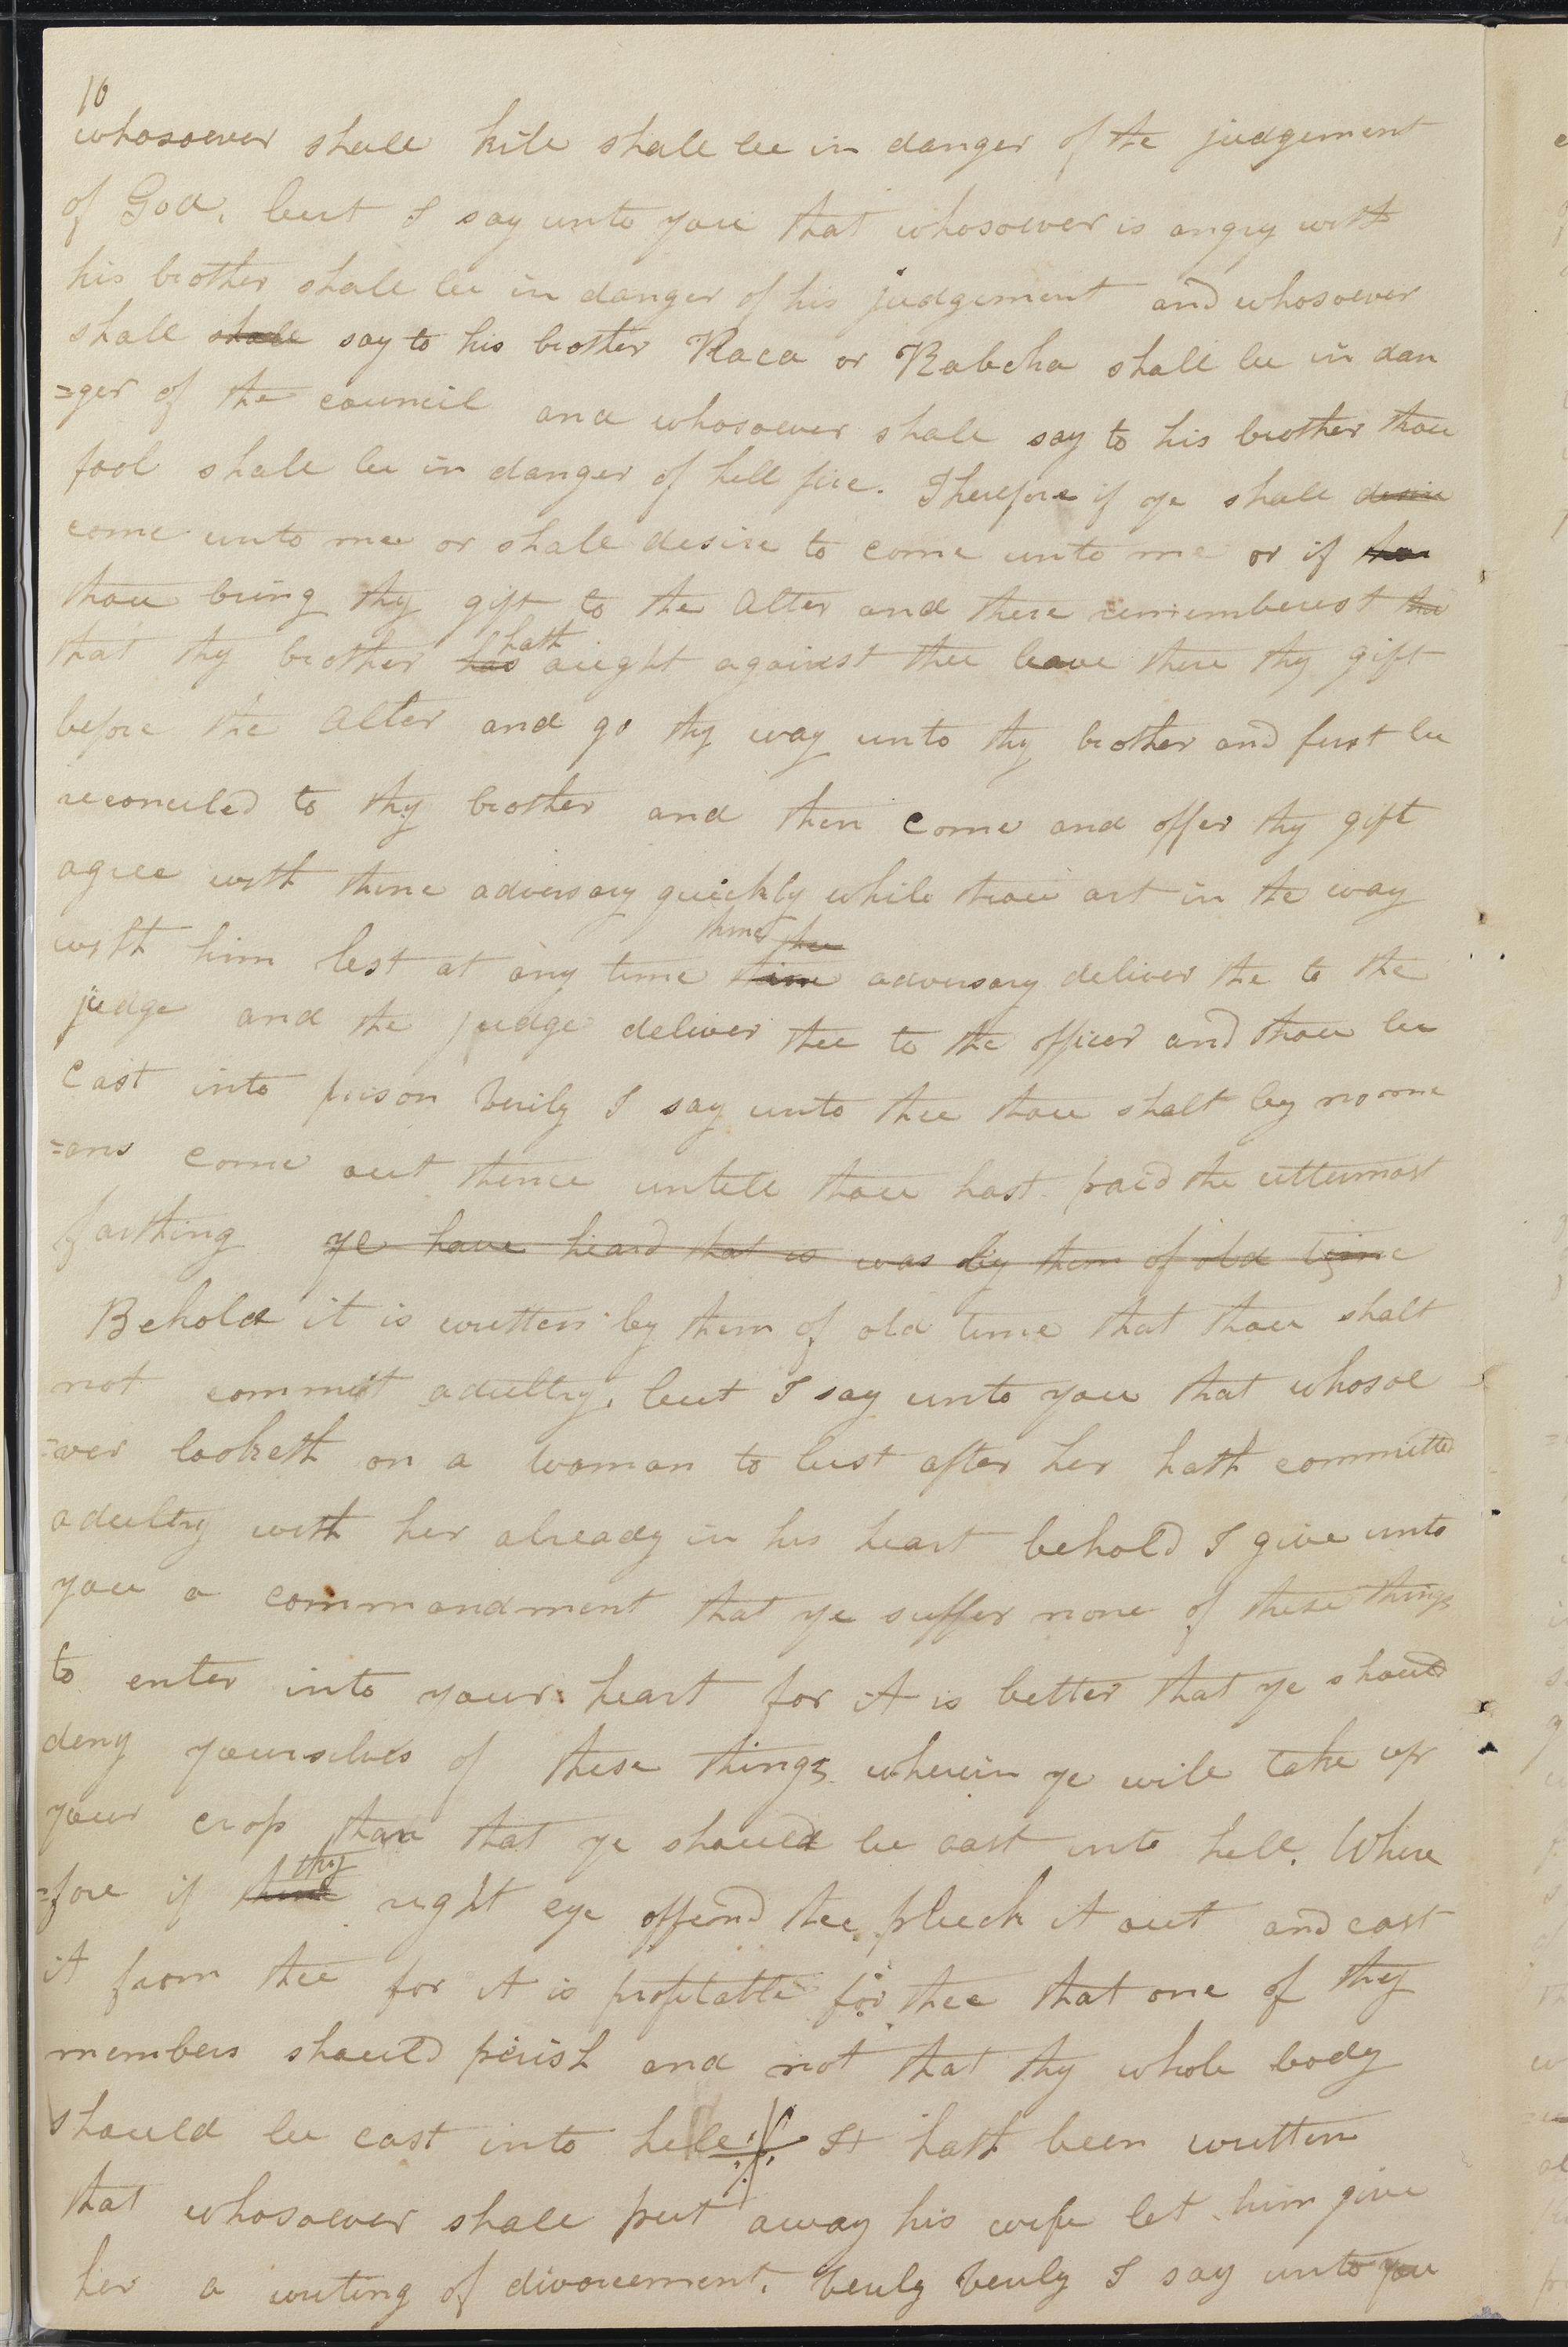 10
whosoever shall kill shall be in danger of the judgement
of God, but I say unto you that whosoever is angry with
his brother shall be in danger of his judgement and whosoever
shall shall say to his brother Raca or Rabcha shall be in dan
=ger of the council and whosoever shall say to his brother thou
fool shall be in danger of hell fire. Therefore if ye shall desire
come unto me or shall desire to come unto me or if thou
thou bring thy gift to the alter and there rememberest tha
that thy brother has hath aught against thee leave there thy gift
before the alter and go thy way unto thy brother and first be
reconciled to thy brother and then come and offer thy gift
agree with thine adversary quickly while thou art in the way
thine the
with him lest at any time thine adversary deliver the to the
judge and the judge deliver thee to the officer and thou be
cast into prison Verily I say unto thee thou shalt by no me
=ans come out thence untill thou hast paid the uttermost
farthing ye have heard that is was by them of old time
Behold it is written by them of old time that thou shalt
not commit adultry, but I say unto you that whosoe
=ver looketh on a woman to lust after her hath committed
adultry with her already in his heart behold I give unto
you a commandment that ye suffer none of these things
to enter into your heart for it is better that ye should
deny yourselves of these things wherein ye will take up
your crop than that ye should be cast into hell. Where
=fore if thine thy right eye offend thee pluck it out and cast
it from thee for it is profitable for thee that one of thy
members should perish and not that thy whole body
should be cast into hell It hath been written
that whosoever shall put away his wife let him give
her a writing of divorcement. Verily Verily I say unto you